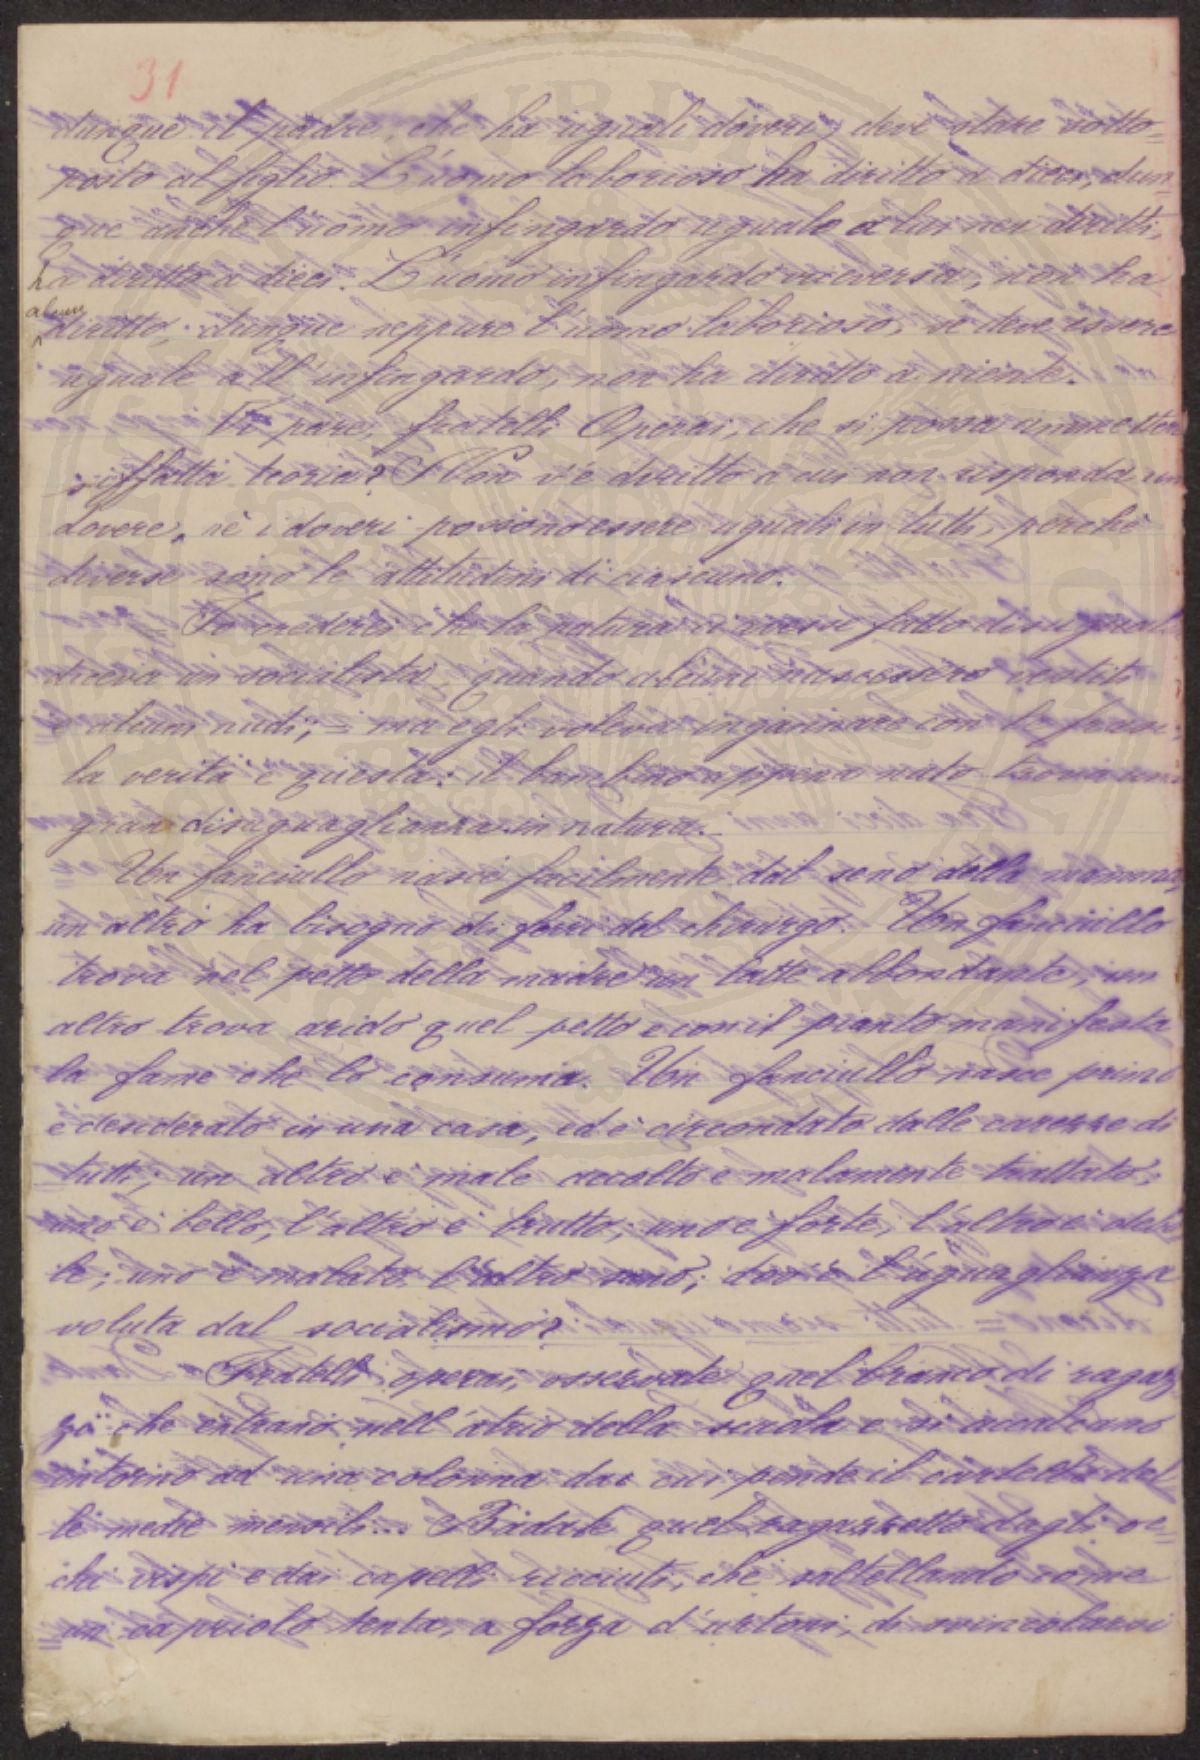 31
dunque il padre, che ha uguali doveri, deve stare sotto=
posto al figlio. L'uomo laborioso ha diritto a dieci, dun=
que anche l'uomo infingardo uguale a lui nei diritti,
ha diritto a dieci. L'uomo infingardo viceversa, non ha
alcun
diritto; dunque neppure l'uomo laborioso, se deve essere
uguale all'infingardo, non ha diritto a niente.
Vi pare, fratelli Operai, che si possa ammettere
siffatta teoria? Non v'è diritto a cui non risponda un
dovere, nè i doveri possono essere uguali in tutti, perchè
diverse sono le attitudini di ciascuno.
= Io crederei che la natura ci avesse fatto disuguali
diceva un socialista, quando alcuni nascessero vestiti
e alcuni nudi; = ma egli voleva ingannare con la frase:
la verità è questa: il bambino appena nato trova una
gran disuguaglianza in natura.
Un fanciullo nasce facilmente dal seno della mamma,
un altro ha bisogno dei ferri del chirurgo. Un fanciullo
trova nel petto della madre un latte abbondante, un
altro trova arido quel petto e con il pianto manifesta
la fame che lo consuma. Un fanciullo nasce primo
è desiderato in una casa, ed è circondato dalle carezze di
tutti; un altro è male accolto e malamente trattato;
uno è bello, l'altro è brutto; uno è forte, l'altro è debo
le; uno è malato, l'altro sano; dov'è l'uguaglianza
voluta dal socialismo?
Fratelli operai, osservate quel branco di ragaz
zi che entrano nell'atrio della scuola e si accalcano
intorno ad una colonna da cui pende il cartello del
le medie mensili... Badate quel ragazzetto dagli oc=
chi vispi e dai capelli ricciuti, che saltellando come
un capriolo tenta, a forza d'urtoni, di svincolarsi